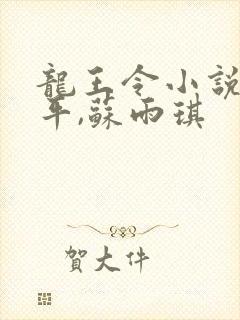 龍王令小說
平,蘇雨琪
賀大件